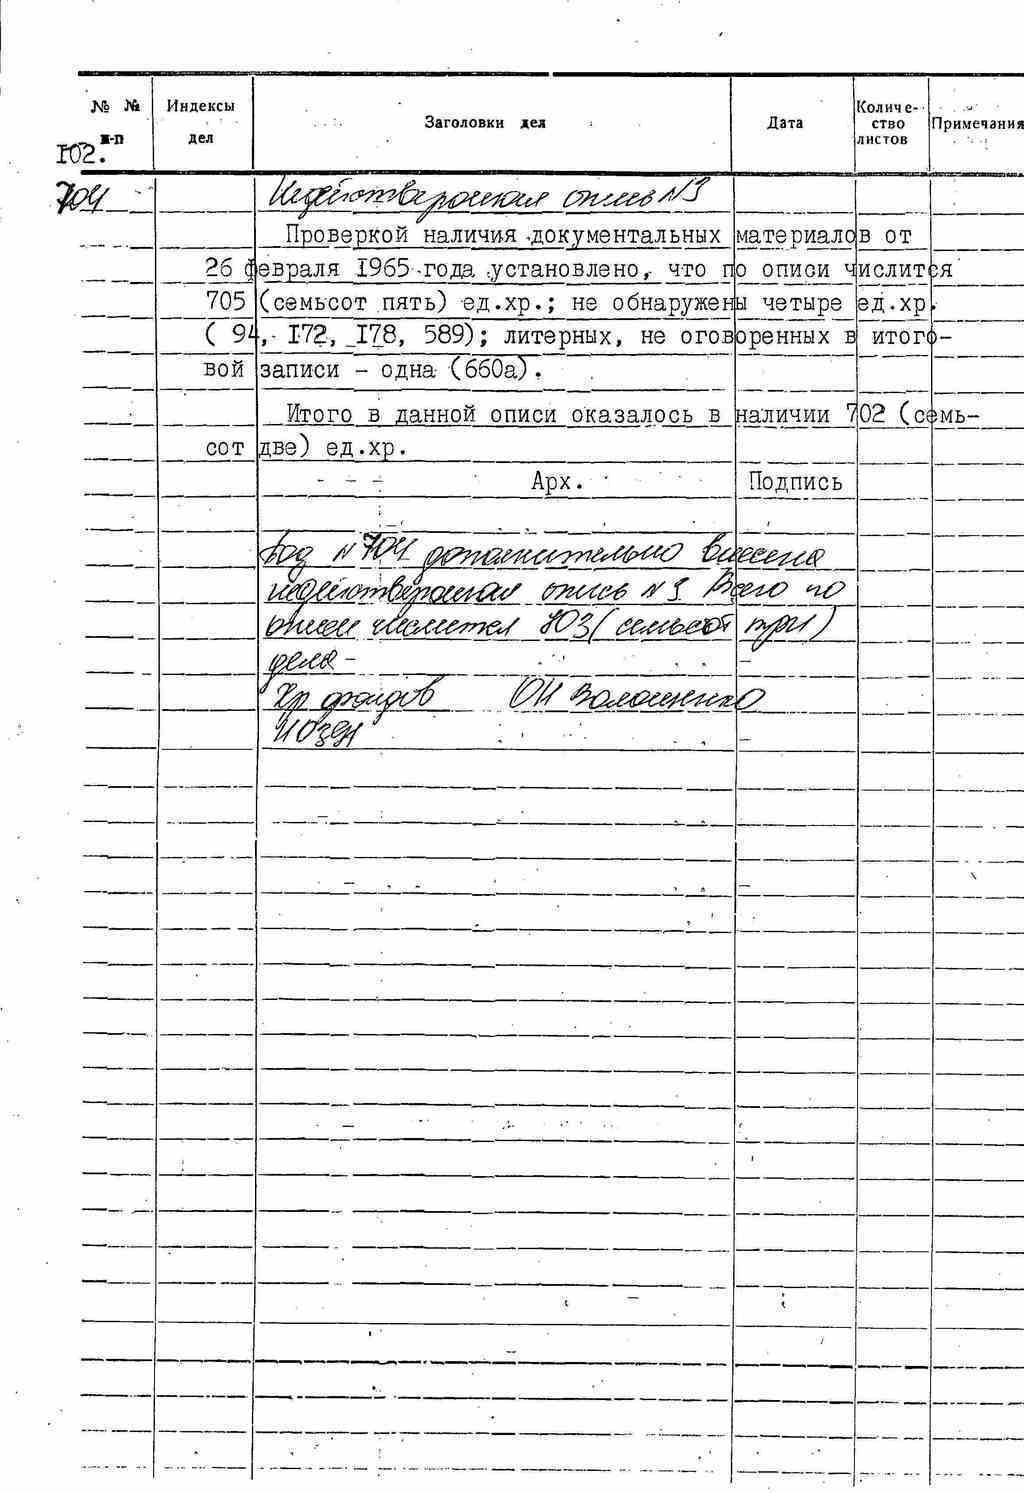 № № п-п Индексы дел Заголовки дел Дата Количество листов Примечания
102.
704 Недействующая опись №3
Проверкой наличия документальных материалов от
26 февраля 1965 года установлено, что по описи числится
705 (семьсот пять) ед.хр.; не обнаружены четыре ед.хр.
( 94, 172, 178, 589); литерных, не оговоренных в итого-
вой записи - одна (660а).
Итого в данной описи оказалось в наличии 702 (семь-
сот две) ед.хр.
Арх. Подпись
Под №704 дополнительно внесена
недействующая опись №3 Всего по
описи числится 703 (семьсот три)
дела-
Хр фондов